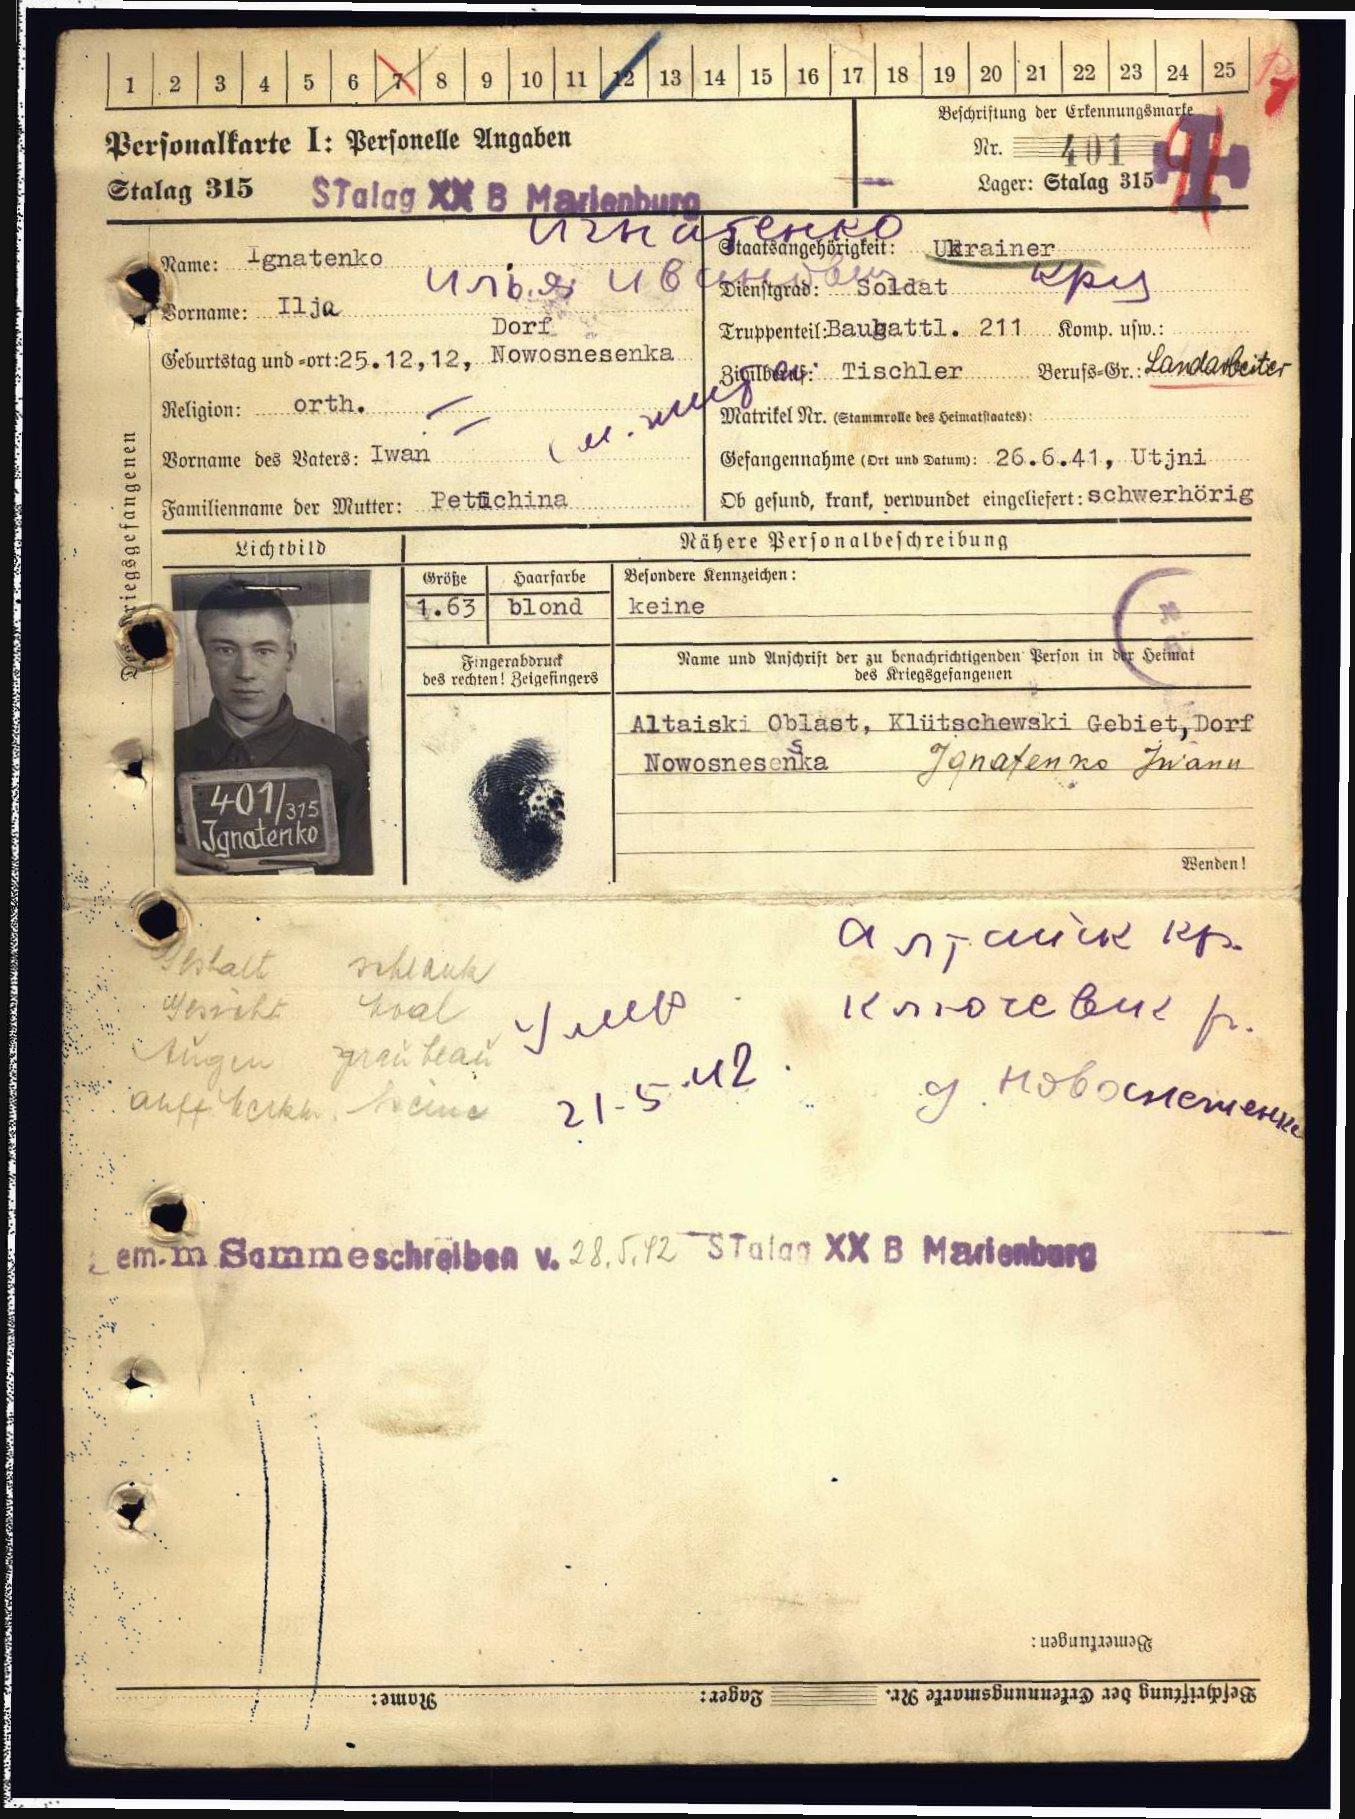 1 2 3 4 5 6 7 8 9 10 11 12 13 14 15 16 17 18 19 20 21 22 23 24 25
Personalkarte I: Personelle Angaben
Beschriftung der Erkennungsmarke
Nr. 401
Stalag 315 STalag XX B Marienburg
Lager: Stalag 315
Игнатенко
Name: Ignatenko
Staatsangehörigkeit: Ukrainer
Илья Иванович
Vorname: Ilja
Dienstgrad: Soldat
Geburtstag und -ort: 25.12,12, Dorf Nowosnesenka
Truppenteil: Baubattl. 211 Komp. usw.:
Zivilberuf: Tischler Berufs-Gr.: Landarbeiter
Religion: orth.
Matrikel Nr. (Stammrolle des Heimatstaates):
Vorname des Vaters: Iwan
Gefangennahme (Ort und Datum): 26.6.41, Utjni
Familienname der Mutter: Petuchina
Ob gesund, krank, verwundet eingeliefert: schwerhörig
Des Kriegsgefangenen
Lichtbild
Nähere Personalbeschreibung
Größe Haarfarbe Besondere Kennzeichen:
1.63 blond keine
Fingerabdruck
des rechten! Zeigefingers
Name und Anschrift der zu benachrichtigenden Person in der Heimat
des Kriegsgefangenen
Altaiski Oblast, Klütschewski Gebiet, Dorf
Nowosnesenka Ignatenko Iwann
401/315
Ignatenko
Wenden!
Алтайск кр.
Gestalt schlank
Gesicht oval
Ключевск р.
Augen graublau
21-5-42.
em. m Sammeschreiben v. 28.5.42 STalag XX B Marienburg
Bemerkungen:
Beschriftung der Erkennungsmarke Nr. Lager: Name: